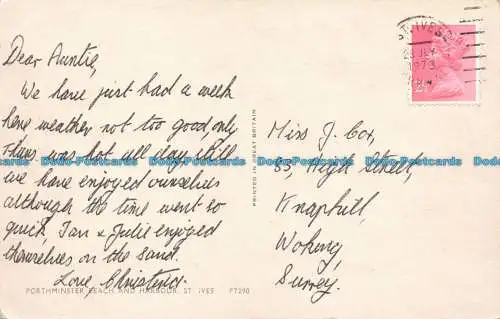 Dear Auntie,
We have just had a week
here weather not too good, only
Thurs was hot all day still
we have enjoyed ourselves
although the time went so
quick Ian & Julie enjoyed
themselves on the sand.
Love, Christine
PORTHMINSTER BEACH AND HARBOUR, ST. IVES PT290
PRINTED IN GREAT BRITAIN
ST. IVES
1973
Miss J. Cox,
85, High Street,
Knaphill,
Woking,
Surrey.
Dodo-Postcards Dodo-Postcards Dodo-Postcards Dodo-Postcards